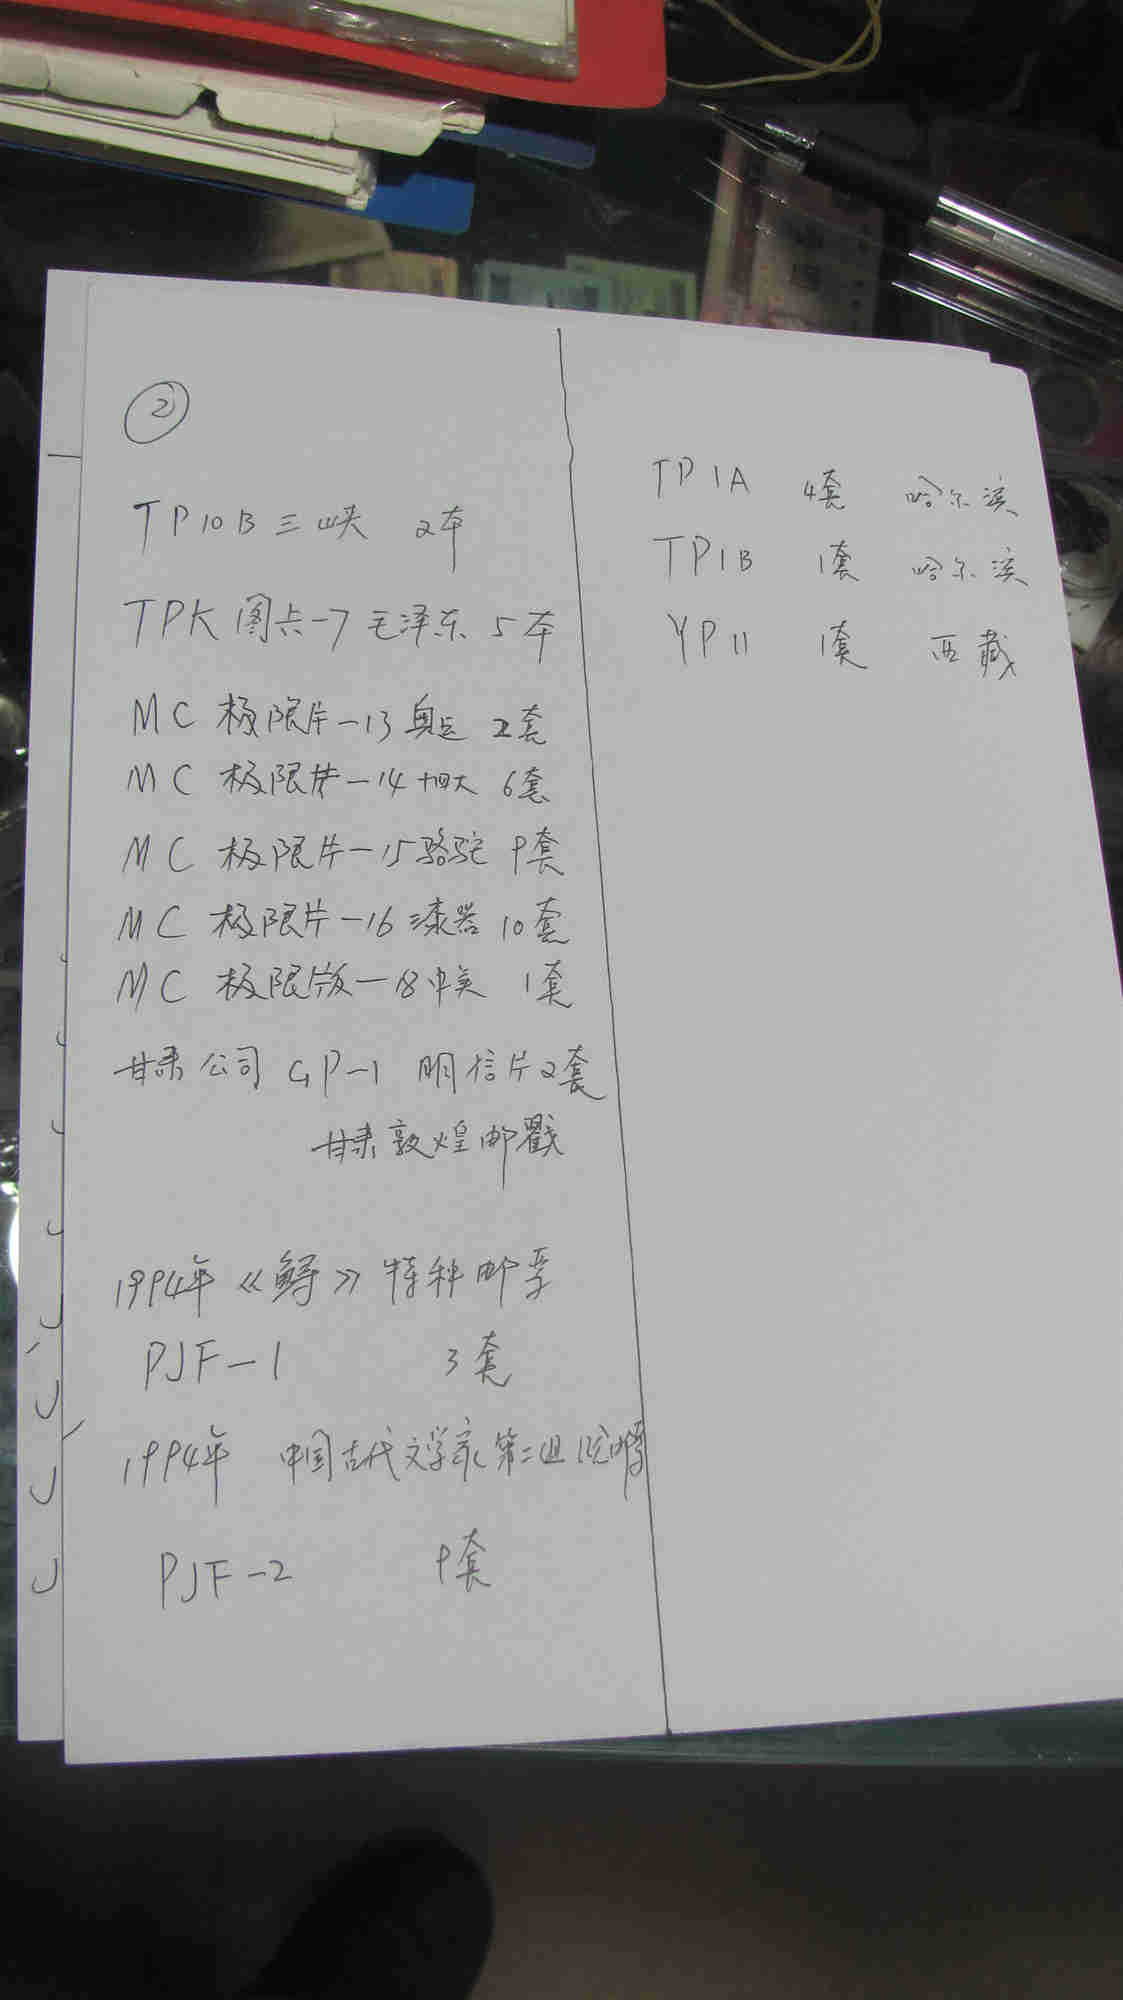 ②
TP10B 三峡 2本
TPK 图卡-7 毛泽东 5本
MC 极限片-13 奥运 2套
MC 极限片-14 十四大 6套
MC 极限片-15 骆驼 9套
MC 极限片-16 漆器 10套
MC 极限版-18 中美 1套
甘肃公司 GP-1 明信片2套
甘肃敦煌邮戳
1994年《鲟》特种邮票
PJF-1 3套
1994年 中国古代文学家第二组
PJF-2 9套
TP1A 4套 哈尔滨
TP1B 1套 哈尔滨
YP11 1套 西藏